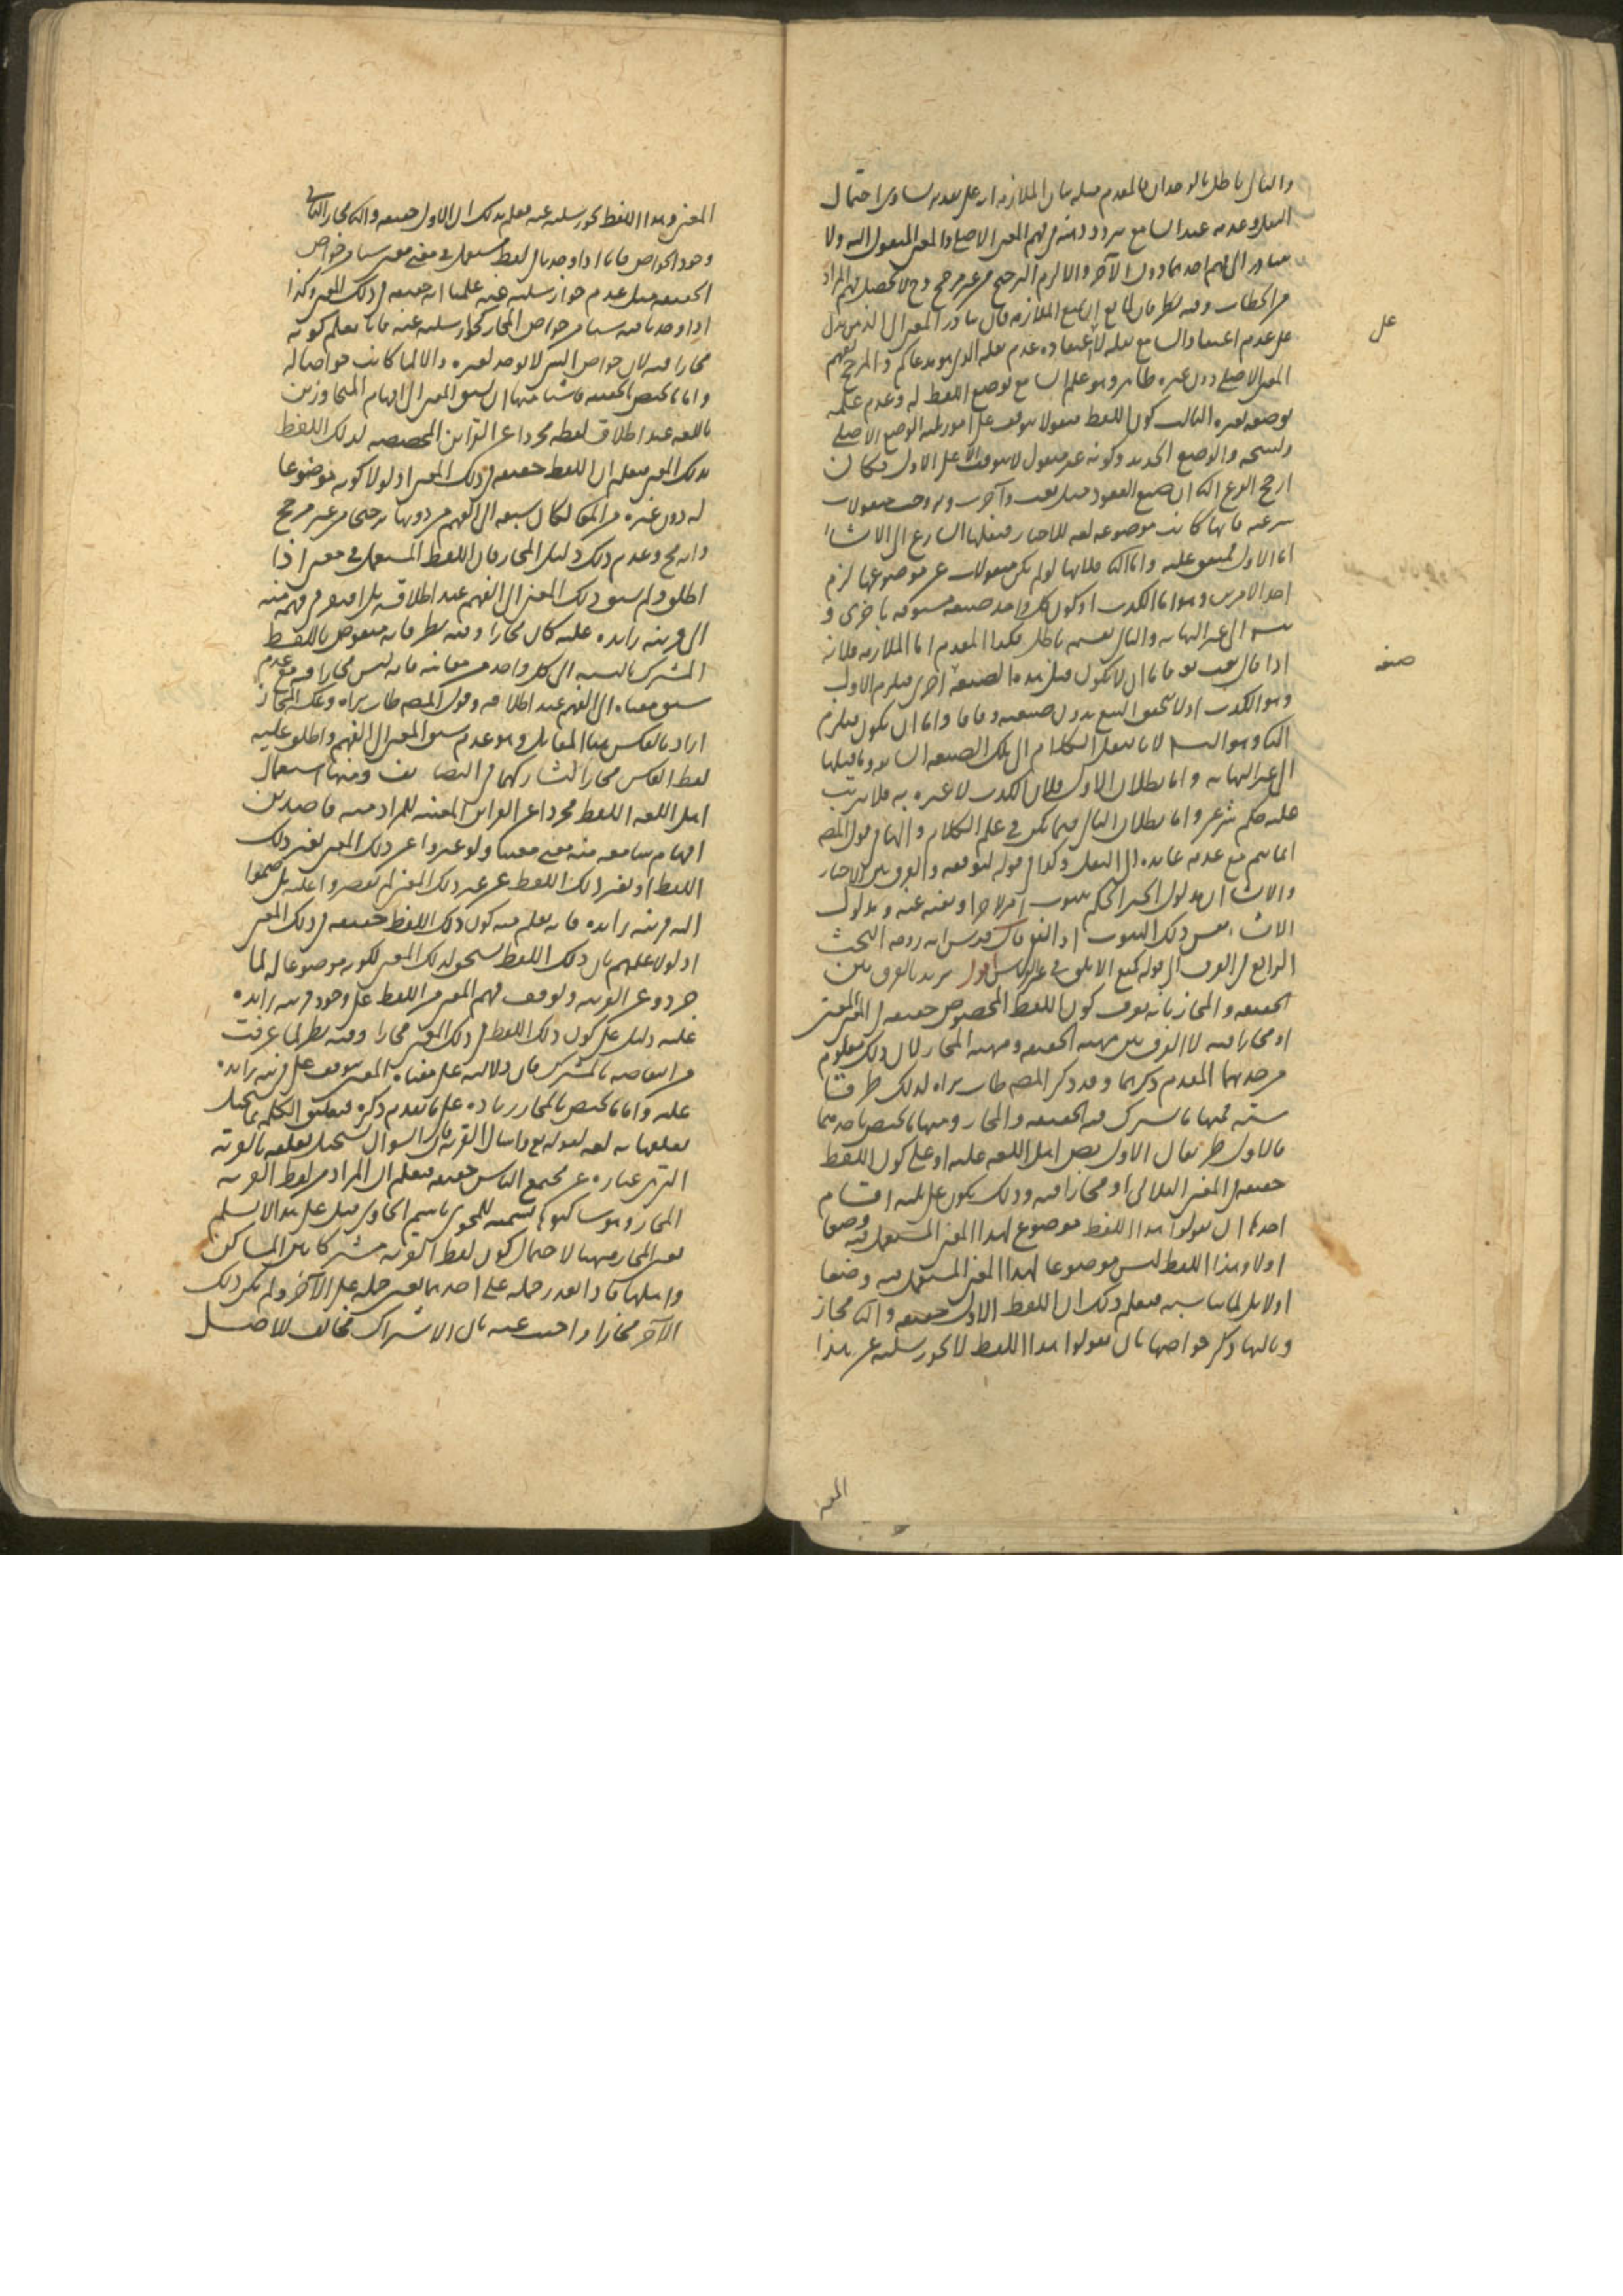 والتالي باطل بالوجدان فالمقدم مثله بيان الملازمة انه على تقدير تساوي احتمال
النقل وعدمه عند السامع يتردد ذهنه في فهم المعنى الاصلي والمعنى المنقول اليه ولا
يتبادر الى فهم احدهما دون الآخر والا لزم الترجيح من غير مرجح وح لا يحصل فهم المراد
من الخطاب وفيه نظر فان لمانع ان يمنع الملازمة فان تبادر المعنى الى الذهن يدل
على عدم اعتقاد السامع نقله لا اعتقاده عدم نقله الذي هو مدعاكم والمرجح لفهم
المعنى الاصلي دون غيره ظاهر وهو علم السامع بوضع اللفظ له وعدم علمه
بوضعه لغيره الثالث كون اللفظ منقولا يتوقف على امور ثلثة الوضع الاصلي
ونسخه والوضع الجديد وكونه غير منقول لا يتوقف الا على الاول فكان
ارجح الفرع الثاني ان صيغ العقود مثل بعت وآجرت وتزوجت منقولات
شرعية فانها كانت موضوعة لغة للاخبار فنقلها الشارع الى الانشاء
اما الاول فمتفق عليه واما الثاني فلانها لو لم تكن منقولات عن موضوعها لزم
احد الامرين وهو اما الكذب او كون كل واحد صيغة مسبوقة باخرى و
يتسلسل الى غير النهاية والتالي بقسميه باطل فكذا المقدم اما الملازمة فلانه
اذا قال بعت فاما ان لا يكون قبل هذه الصيغة اخرى فيلزم الاول
وهو الكذب اذ لا يتحقق البيع بدون صيغته وفاقا واما ان يكون فيلزم
الثاني وهو التسلسل لانا ننقل الكلام الى تلك الصيغة السابقة وما قبلها
الى غير النهاية واما بطلان الاول فلان الكذب لا عبرة به فلا يترتب
عليه حكم شرعي واما بطلان التالي فيما تبين في علم الكلام والهاء في قول المصنف
انما يتم مع عدمه عائدة الى النقل وكذا في قوله لتوقفه والفرق بين الاخبار
والانشاء ان مدلول الخبر الحكم بثبوت امر لآخر او نفيه عنه ومدلول
الانشاء نفس ذلك الثبوت او النفي قال قدس الله روحه البحث
الرابع في الفرق الى قوله كمنع الابلق في غير الفرس اقول يريد بالفرق بين
الحقيقة والمجاز بانه يعرف كون اللفظ المخصوص حقيقة في المعنى المعين
او مجازا فيه لا الفرق بين مهية الحقيقة ومهية المجاز لان ذلك معلوم
من حديهما المقدم ذكرهما وقد ذكر المصنف طاب ثراه لذلك طرقا
ستة فمنها ما يشترك فيه الحقيقة والمجاز ومنها ما يختص باحدهما
فالاول طريقان الاول نص اهل اللغة عليه او على كون اللفظ
حقيقة في المعنى الفلاني او مجازا فيه وذلك يكون على ثلثة اقسام
احدها ان يقولوا هذا اللفظ موضوع لهذا المعنى المستعمل فيه وضعا
اولا وهذا اللفظ ليس موضوعا لهذا المعنى المستعمل فيه وضعا
اولا بل لمناسبة فيعلم بذلك ان اللفظ الاول حقيقة والثاني مجاز
وثالثها ذكر خواصها بان يقولوا هذا اللفظ لا يجوز سلبه عن هذا
على
صيغة
المعنى
المعنى وهذا اللفظ يجوز سلبه عنه فيعلم بذلك ان الاول حقيقة والثاني مجاز الثاني
وجود الخواص فانا اذا وجدنا لفظا يستعمل في معنى معين شيئا من خواص
الحقيقة مثل عدم جواز سلبه عنه علمنا انه حقيقة في ذلك المعنى وكذا
اذا وجدنا فيه شيئا من خواص المجاز كجواز سلبه عنه فانا نعلم كونه
مجازا فيه لان خواص الشيء لا توجد لغيره والا لما كانت خواصا له
واما ما يختص بالحقيقة فاشياء منها ان يسبق المعنى الى افهام المتحاورين
باللغة عند اطلاق لفظه مجردا عن القرائن المخصصة لذلك اللفظ
بذلك المعنى فيعلم ان اللفظ حقيقة في ذلك المعنى اذ لولا كونه موضوعا
له دون غيره من المعاني لكان سبقه الى الفهم من دونها ترجيحا من غير مرجح
وانه مح وعدم ذلك دليل المجاز فان اللفظ المستعمل في معنى اذا
اطلق ولم يسبق ذلك المعنى الى الفهم عند اطلاقه بل افتقر في فهمه منه
الى قرينة زائدة عليه كان مجازا وفيه نظر فانه منقوض باللفظ
المشترك بالنسبة الى كل واحد من معانيه فانه ليس مجازا فيه مع عدم
سبق معناه الى الفهم عند اطلاقه وقول المصنف طاب ثراه وعكسه المجاز
اراد بالعكس هنا المقابل وهو عدم سبق المعنى الى الفهم واطلق عليه
لفظ العكس مجازا لتشاركهما في التضايف ومنها استعمال
اهل اللغة اللفظ مجردا عن القرائن المعينة للمراد منه قاصدين
افهام سامعه منه معنى معينا ولو عبروا عن ذلك المعنى بغير ذلك
اللفظ او بغير ذلك اللفظ عن غير ذلك المعنى لم يقتصروا عليه بل ضموا
اليه قرينة زائدة فانه يعلم منه كون ذلك اللفظ حقيقة في ذلك المعنى
اذ لولا علمهم بان ذلك اللفظ يستحق لذلك المعنى لكونه موضوعا له لما
جردوه عن القرينة وتوقف فهم المعنى من اللفظ على وجود قرينة زائدة
عليه دليل على كون ذلك اللفظ في ذلك المعنى مجازا وفيه نظر لما عرفت
من انتقاضه بالمشترك فان دلالته على معناه المعين يتوقف على قرينة زائدة
عليه واما ما يختص بالمجاز زيادة على ما تقدم ذكره فيعلق الكلمة بما يستحيل
تعلقها به لغة كقوله تع واسال القرية فان السوال يستحيل تعلقه بالقرية
التي هي عبارة عن مجتمع الناس حقيقة فيعلم ان المراد من لفظ القرية
المجاز وهو ساكنوها تسمية للمحوي باسم الحاوي قيل على هذا لا نسلم
تعين المجاز هيهنا لاحتمال كون لفظ القرية مشتركا بين المساكن
واهلها فاذا تعذر حمله على احدهما تعين حمله على الآخر ولم يكن ذلك
الآخر مجازا واجيب عنه بان الاشتراك مخالف للاصل